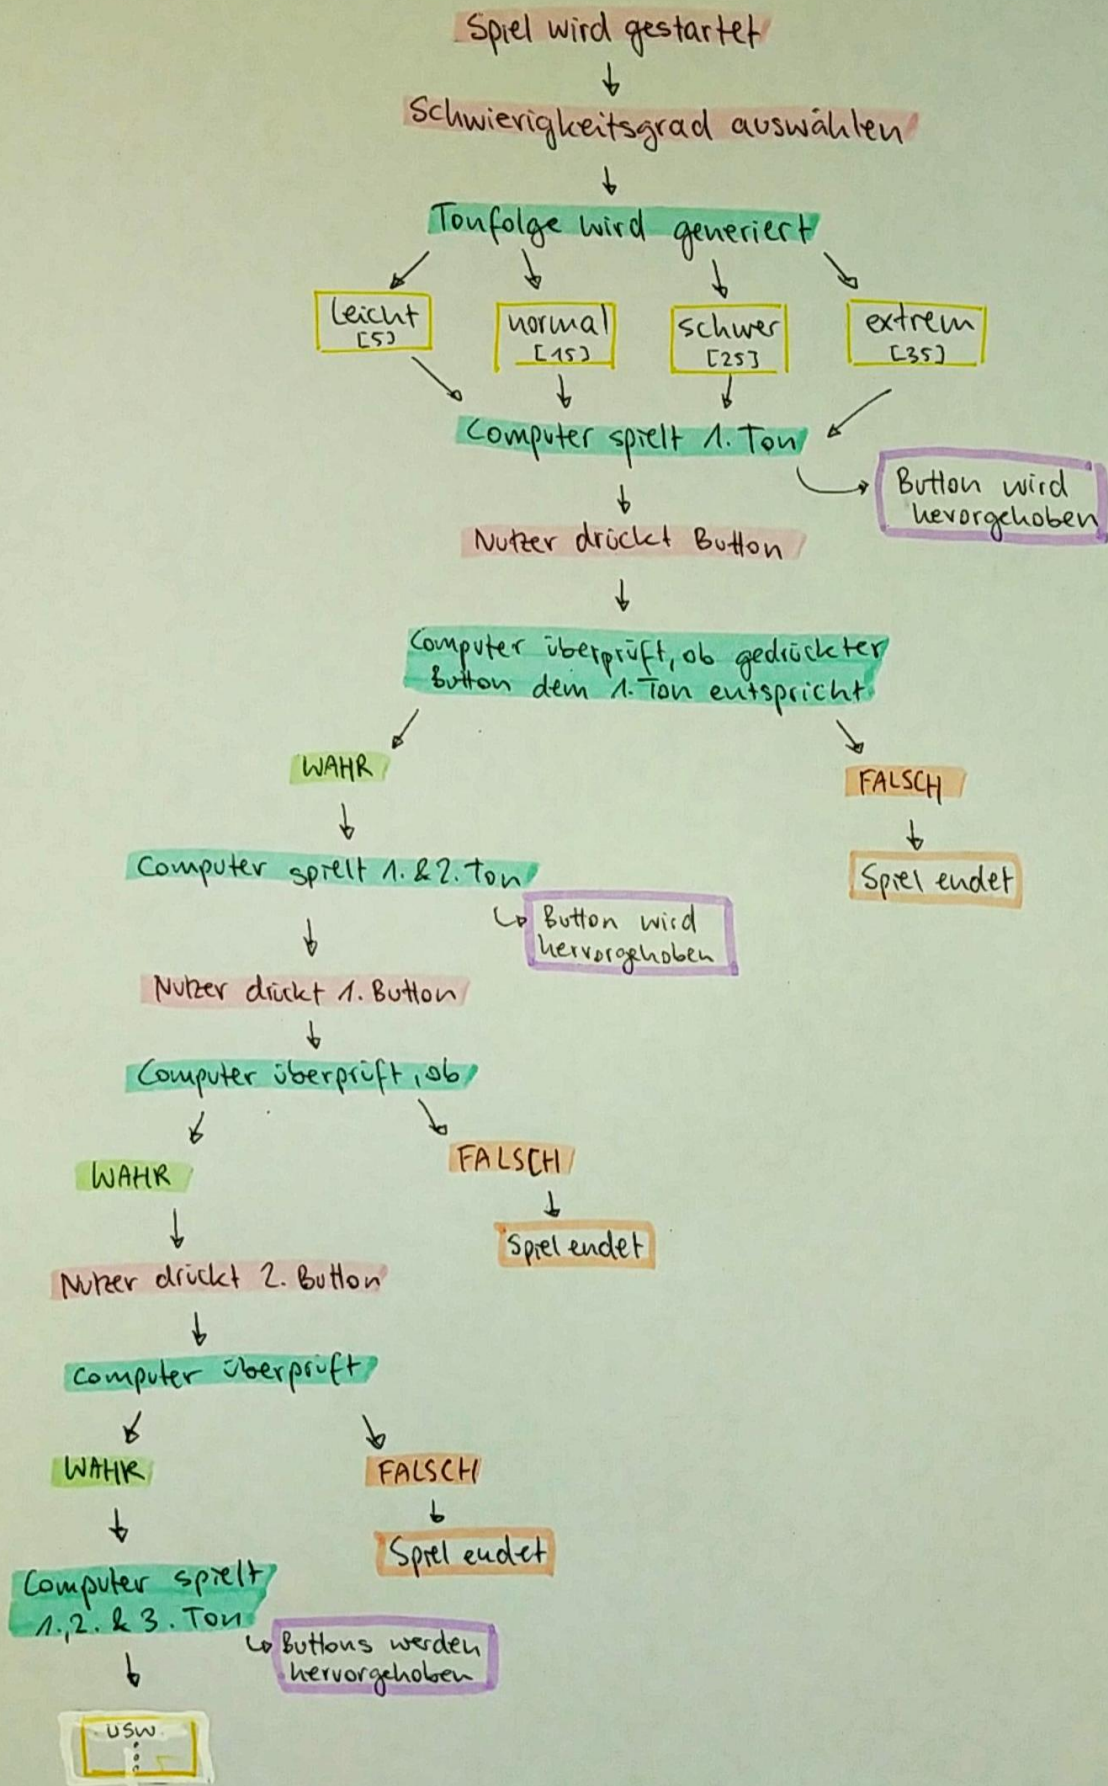 Spiel wird gestartet
Schwierigkeitsgrad auswählen
Tonfolge wird generiert
leicht
[5]
normal
[15]
schwer
[25]
extrem
[35]
Computer spielt 1. Ton
Button wird
hevorgehoben
Nutzer drückt Button
Computer überprüft, ob gedrückter
Button dem 1. Ton entspricht
WAHR
FALSCH
Computer spielt 1. & 2. Ton
Spiel endet
Button wird
hervorgehoben
Nutzer drückt 1. Button
Computer überprüft, ob
WAHR
FALSCH
Spiel endet
Nutzer drückt 2. Button
Computer überprüft
WAHR
FALSCH
Spiel endet
Computer spielt
1., 2. & 3. Ton
Buttons werden
hervorgehoben
usw.